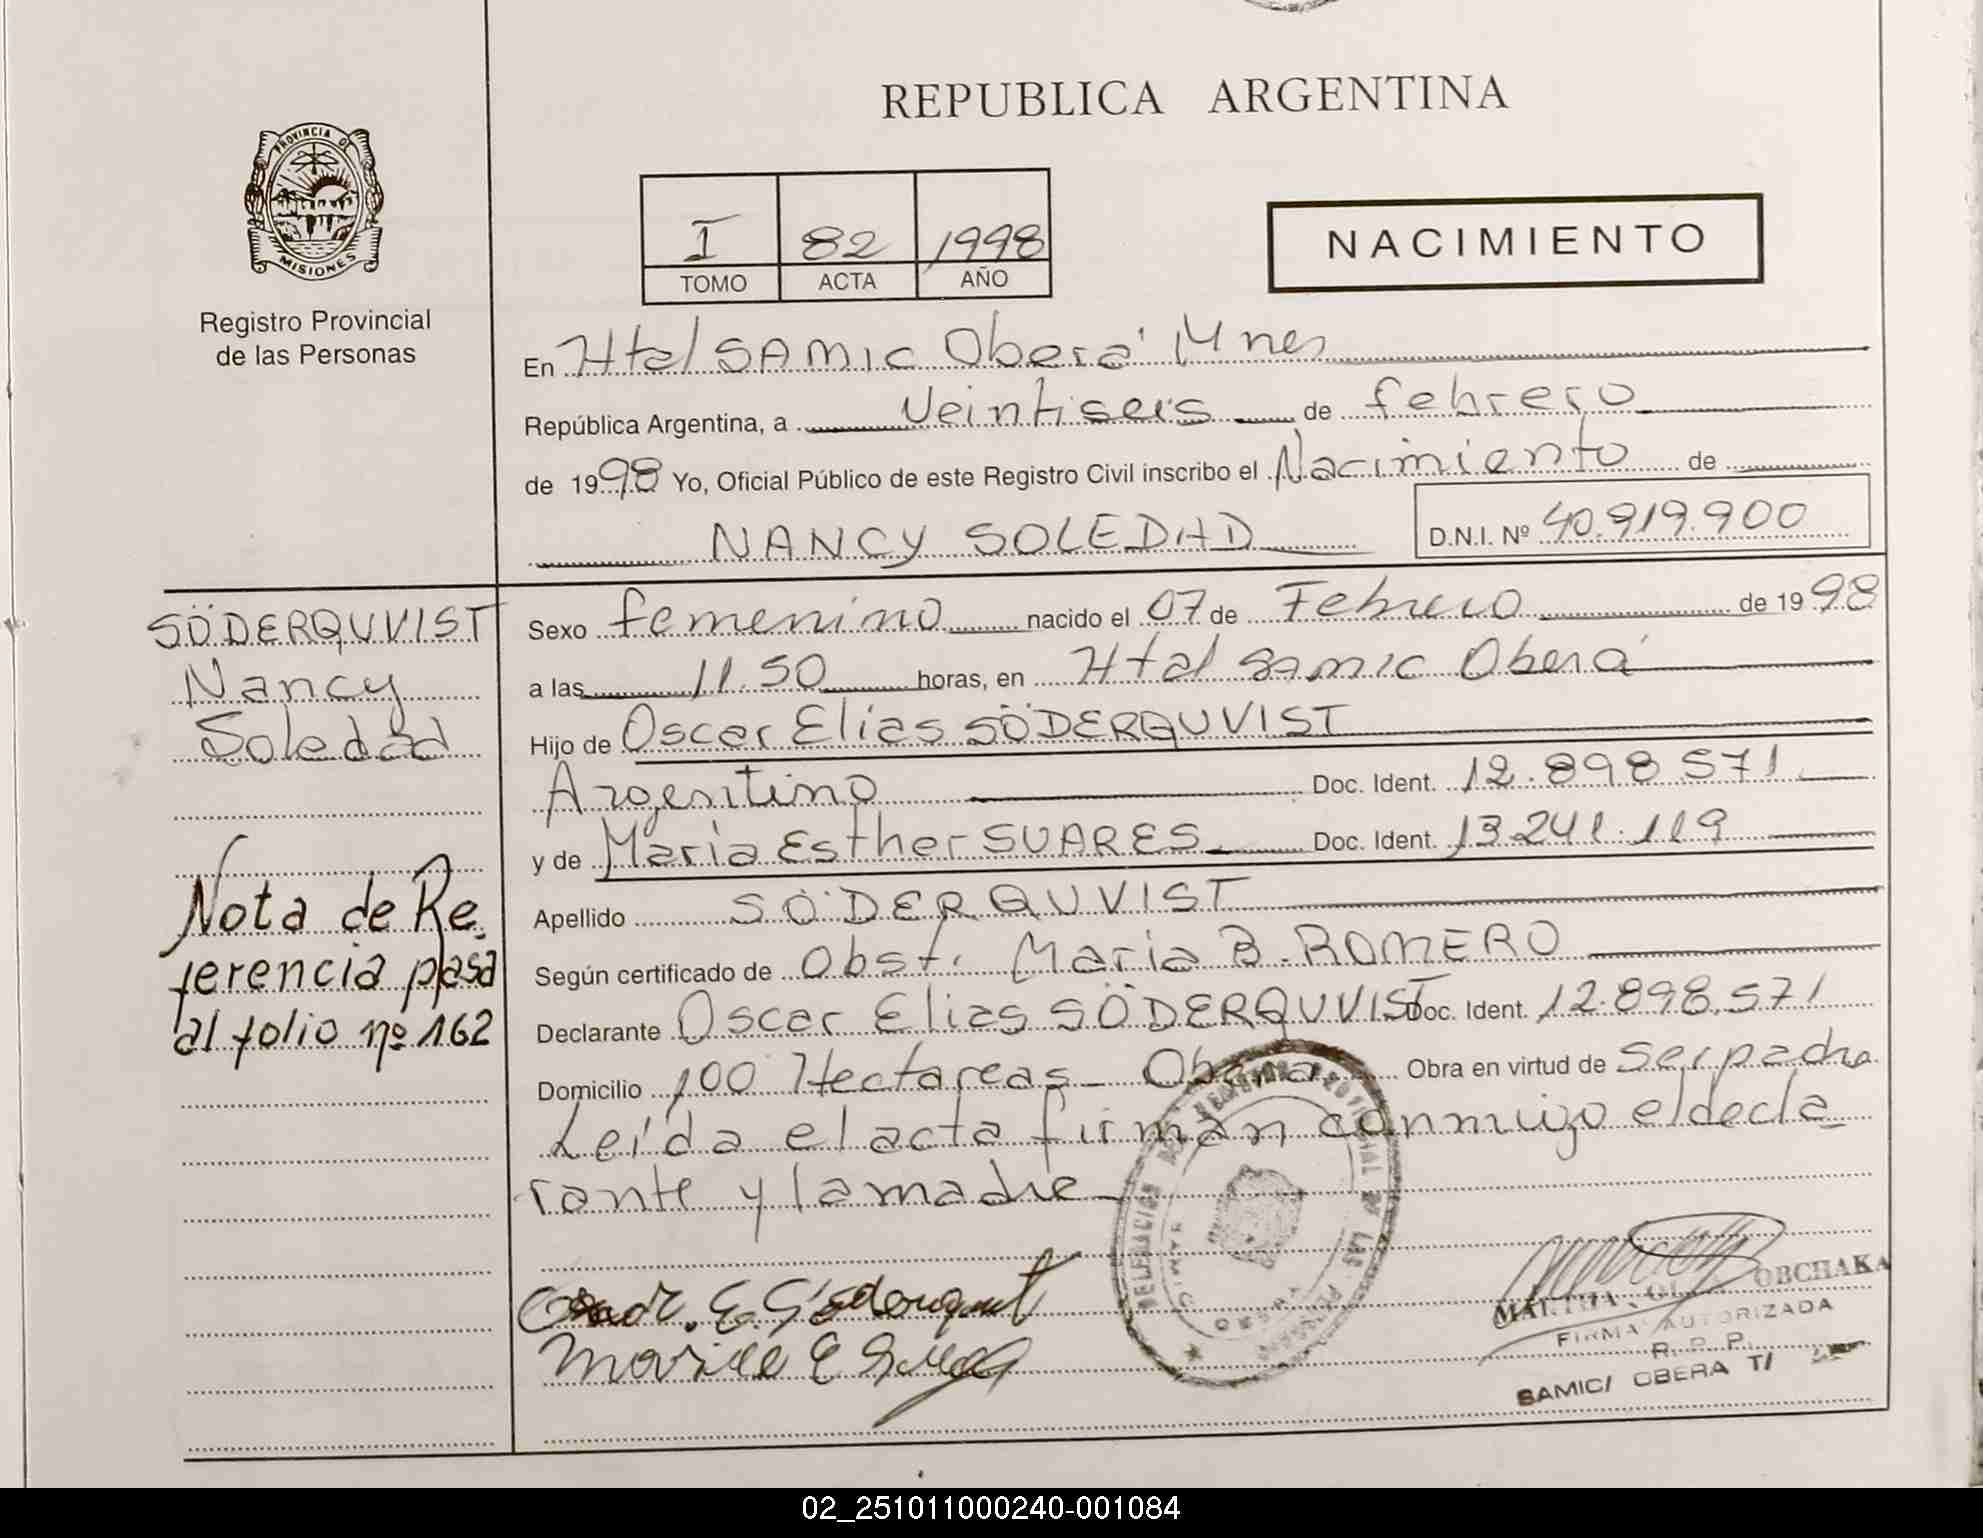 REPUBLICA ARGENTINA
PROVINCIA DE
MISIONES
Registro Provincial
de las Personas
I 82 1998
TOMO ACTA AÑO
NACIMIENTO
En Htal SAMIC Oberá Mnes
República Argentina, a Veintiseis de febrero
de 1998 Yo, Oficial Público de este Registro Civil inscribo el Nacimiento de
NANCY SOLEDAD
D.N.I. Nº 40.919.900
SÖDERQUVIST
Nancy
Soledad
Nota de Re-
ferencia pasa
al folio nº 162
Sexo femenino nacido el 07 de Febrero de 1998
a las 11.50 horas, en Htal SAMIC Oberá
Hijo de Oscar Elias SÖDERQUVIST
Argentino Doc. Ident. 12.898.571
y de Maria Esther SUARES Doc. Ident. 13.241.119
Apellido SÖDERQUVIST
Según certificado de Obst. Maria B. ROMERO
Declarante Oscar Elias SÖDERQUVIST Doc. Ident. 12.898.571
Domicilio 100 Hectareas - Oberá Obra en virtud de ser padre
Leída el acta firman conmigo el decla
rante y la madre
OBCHAKA
FIRMA AUTORIZADA
R. P. P.
SAMIC/ OBERA TI
02_251011000240-001084